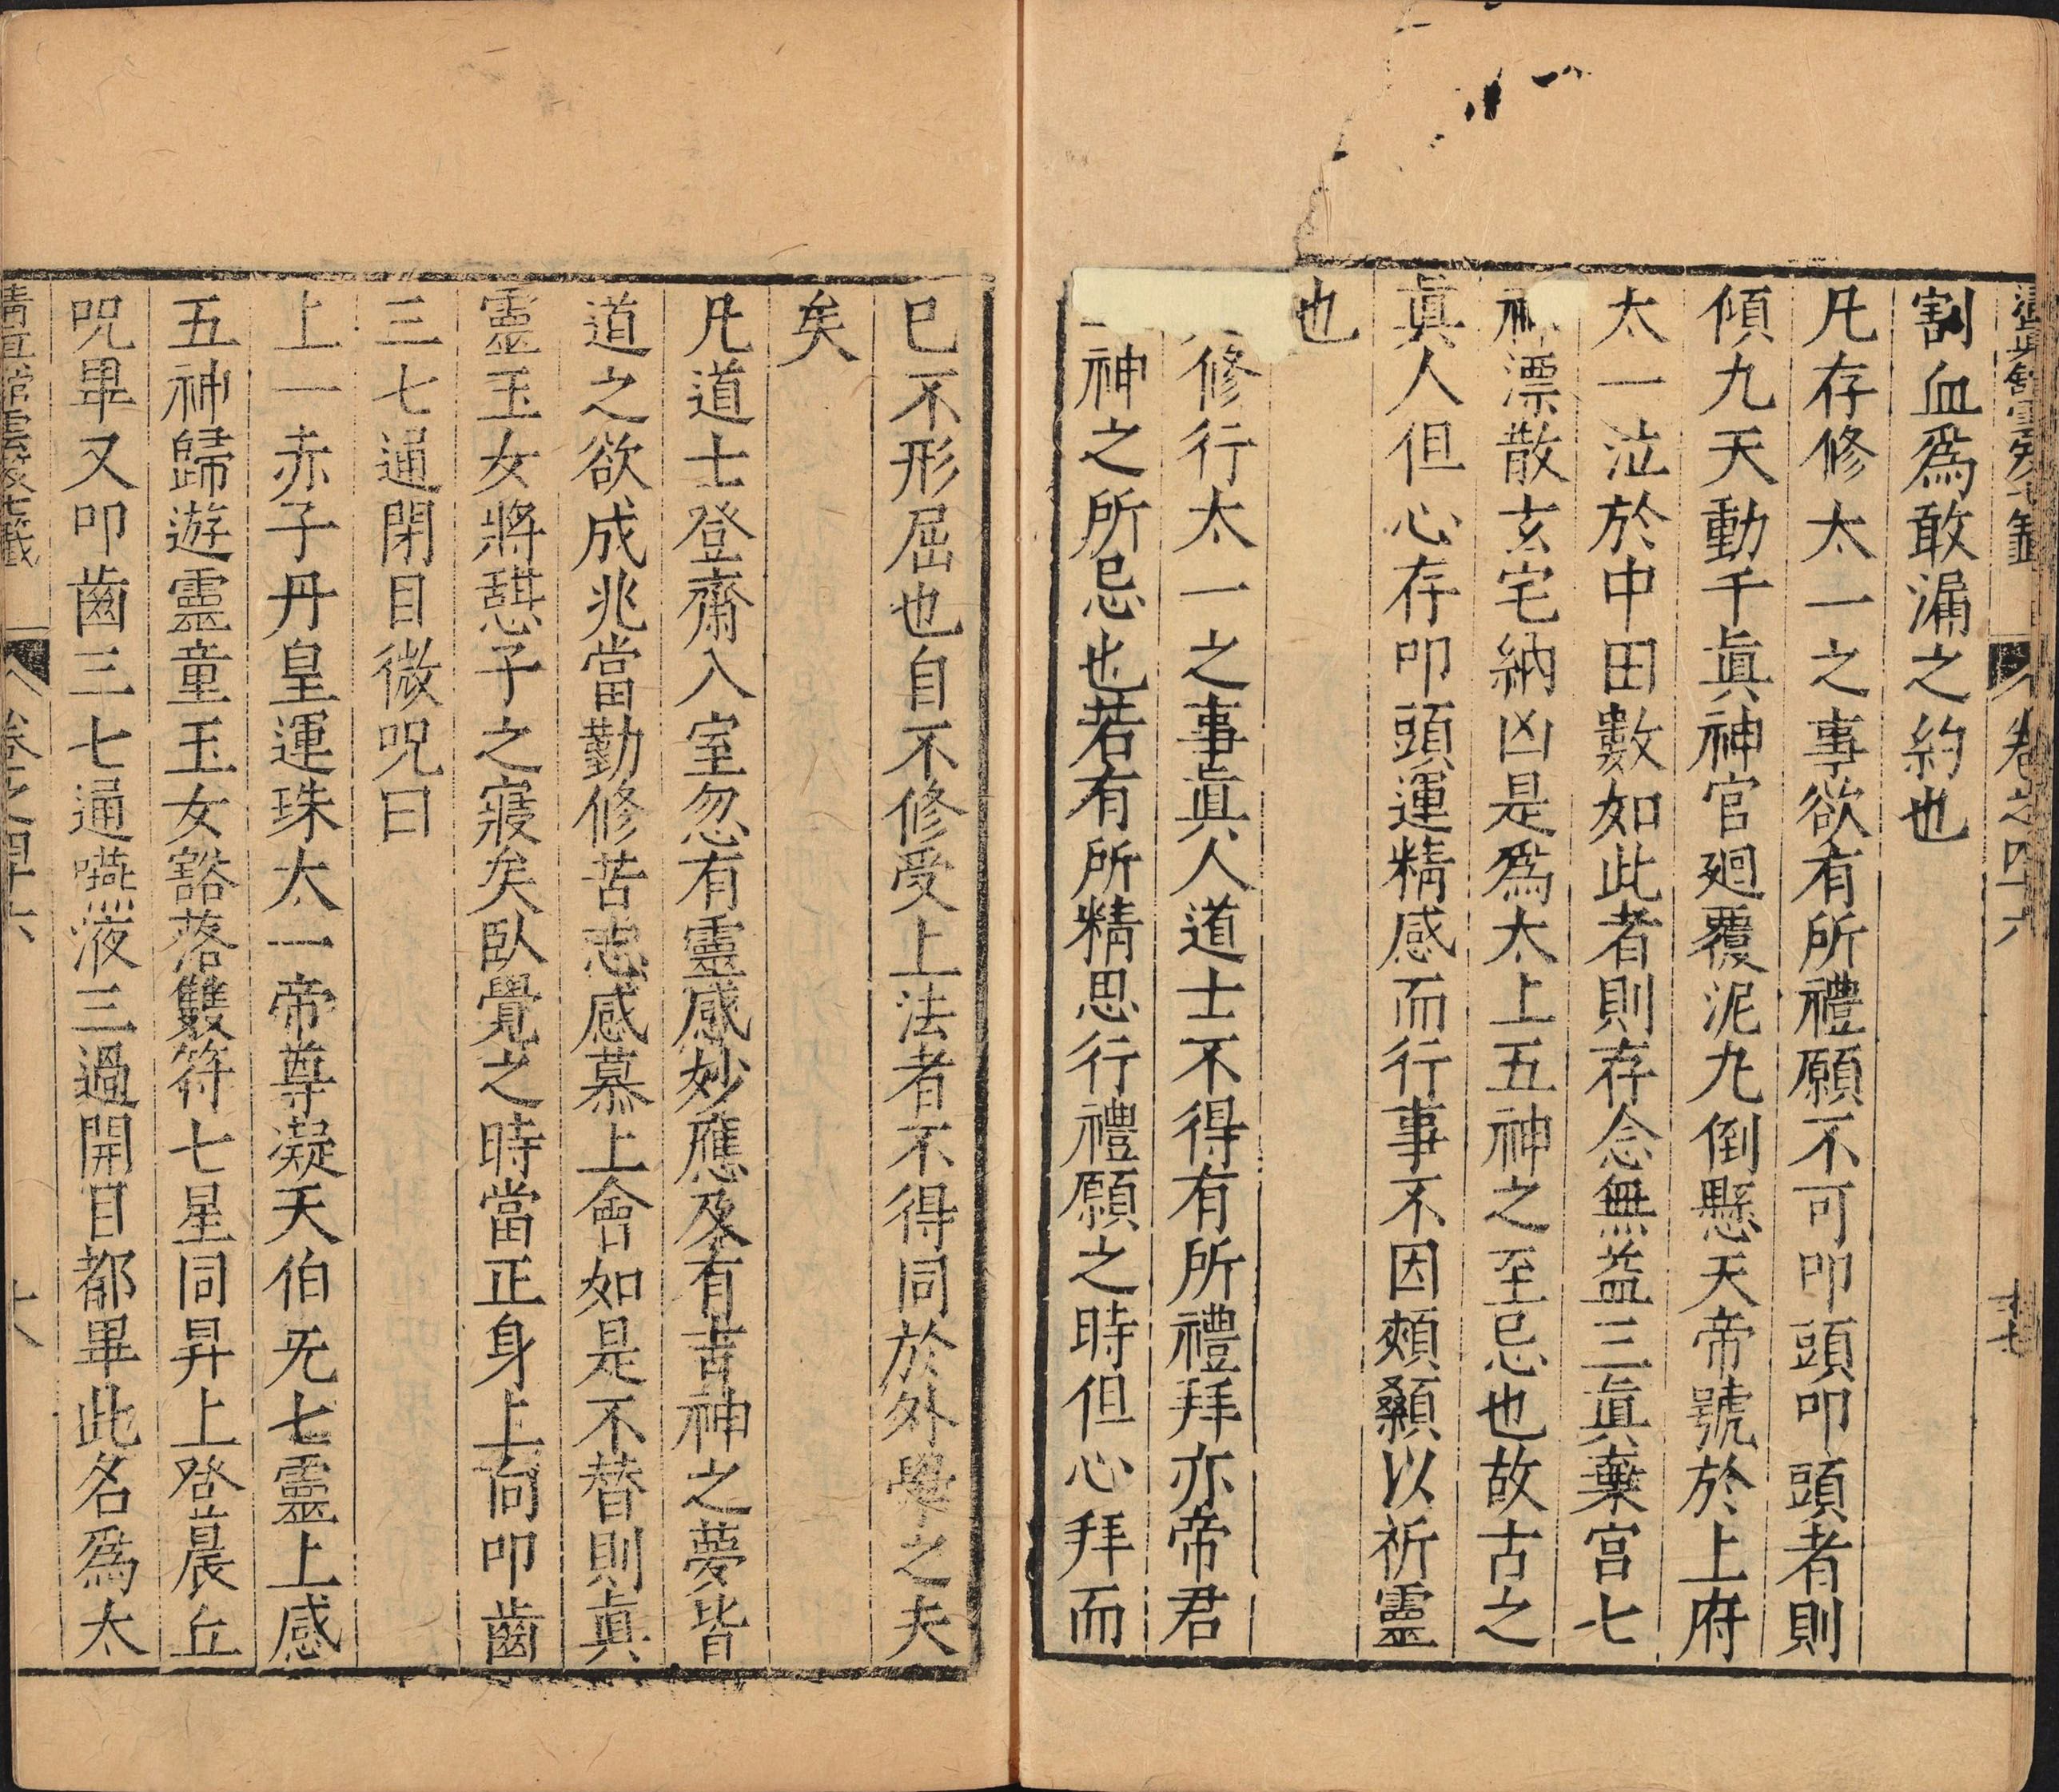 卷之四十六
十七
割血爲敢漏之約也
凡存修太一之事欲有所禮願不可叩頭叩頭者則
傾九天動千眞神官廻覆泥丸倒懸天帝號於上府
太一泣於中田數如此者則存念無益三眞棄宮七
神漂散玄宅納凶是爲太上五神之至忌也故古之
眞人但心存叩頭運精感而行事不因頰顙以祈靈
也
修行太一之事眞人道士不得有所禮拜亦帝君
神之所忌也若有所精思行禮願之時但心拜而
已不形屈也自不修受上法者不得同於外學之夫
矣
凡道士登齋入室忽有靈感妙應及有吉神之夢皆
道之欲成兆當勤修苦志感慕上會如是不替則眞
靈玉女將憇子之寢矣臥覺之時當正身上向叩齒
三七通閉目微呪曰
上一赤子丹皇運珠太一帝尊凝天伯旡七靈上感
五神歸遊靈童玉女豁落雙符七星同昇上登晨丘
呪畢又叩齒三七通嚥液三過開目都畢此名爲太
卷之四十六
十八